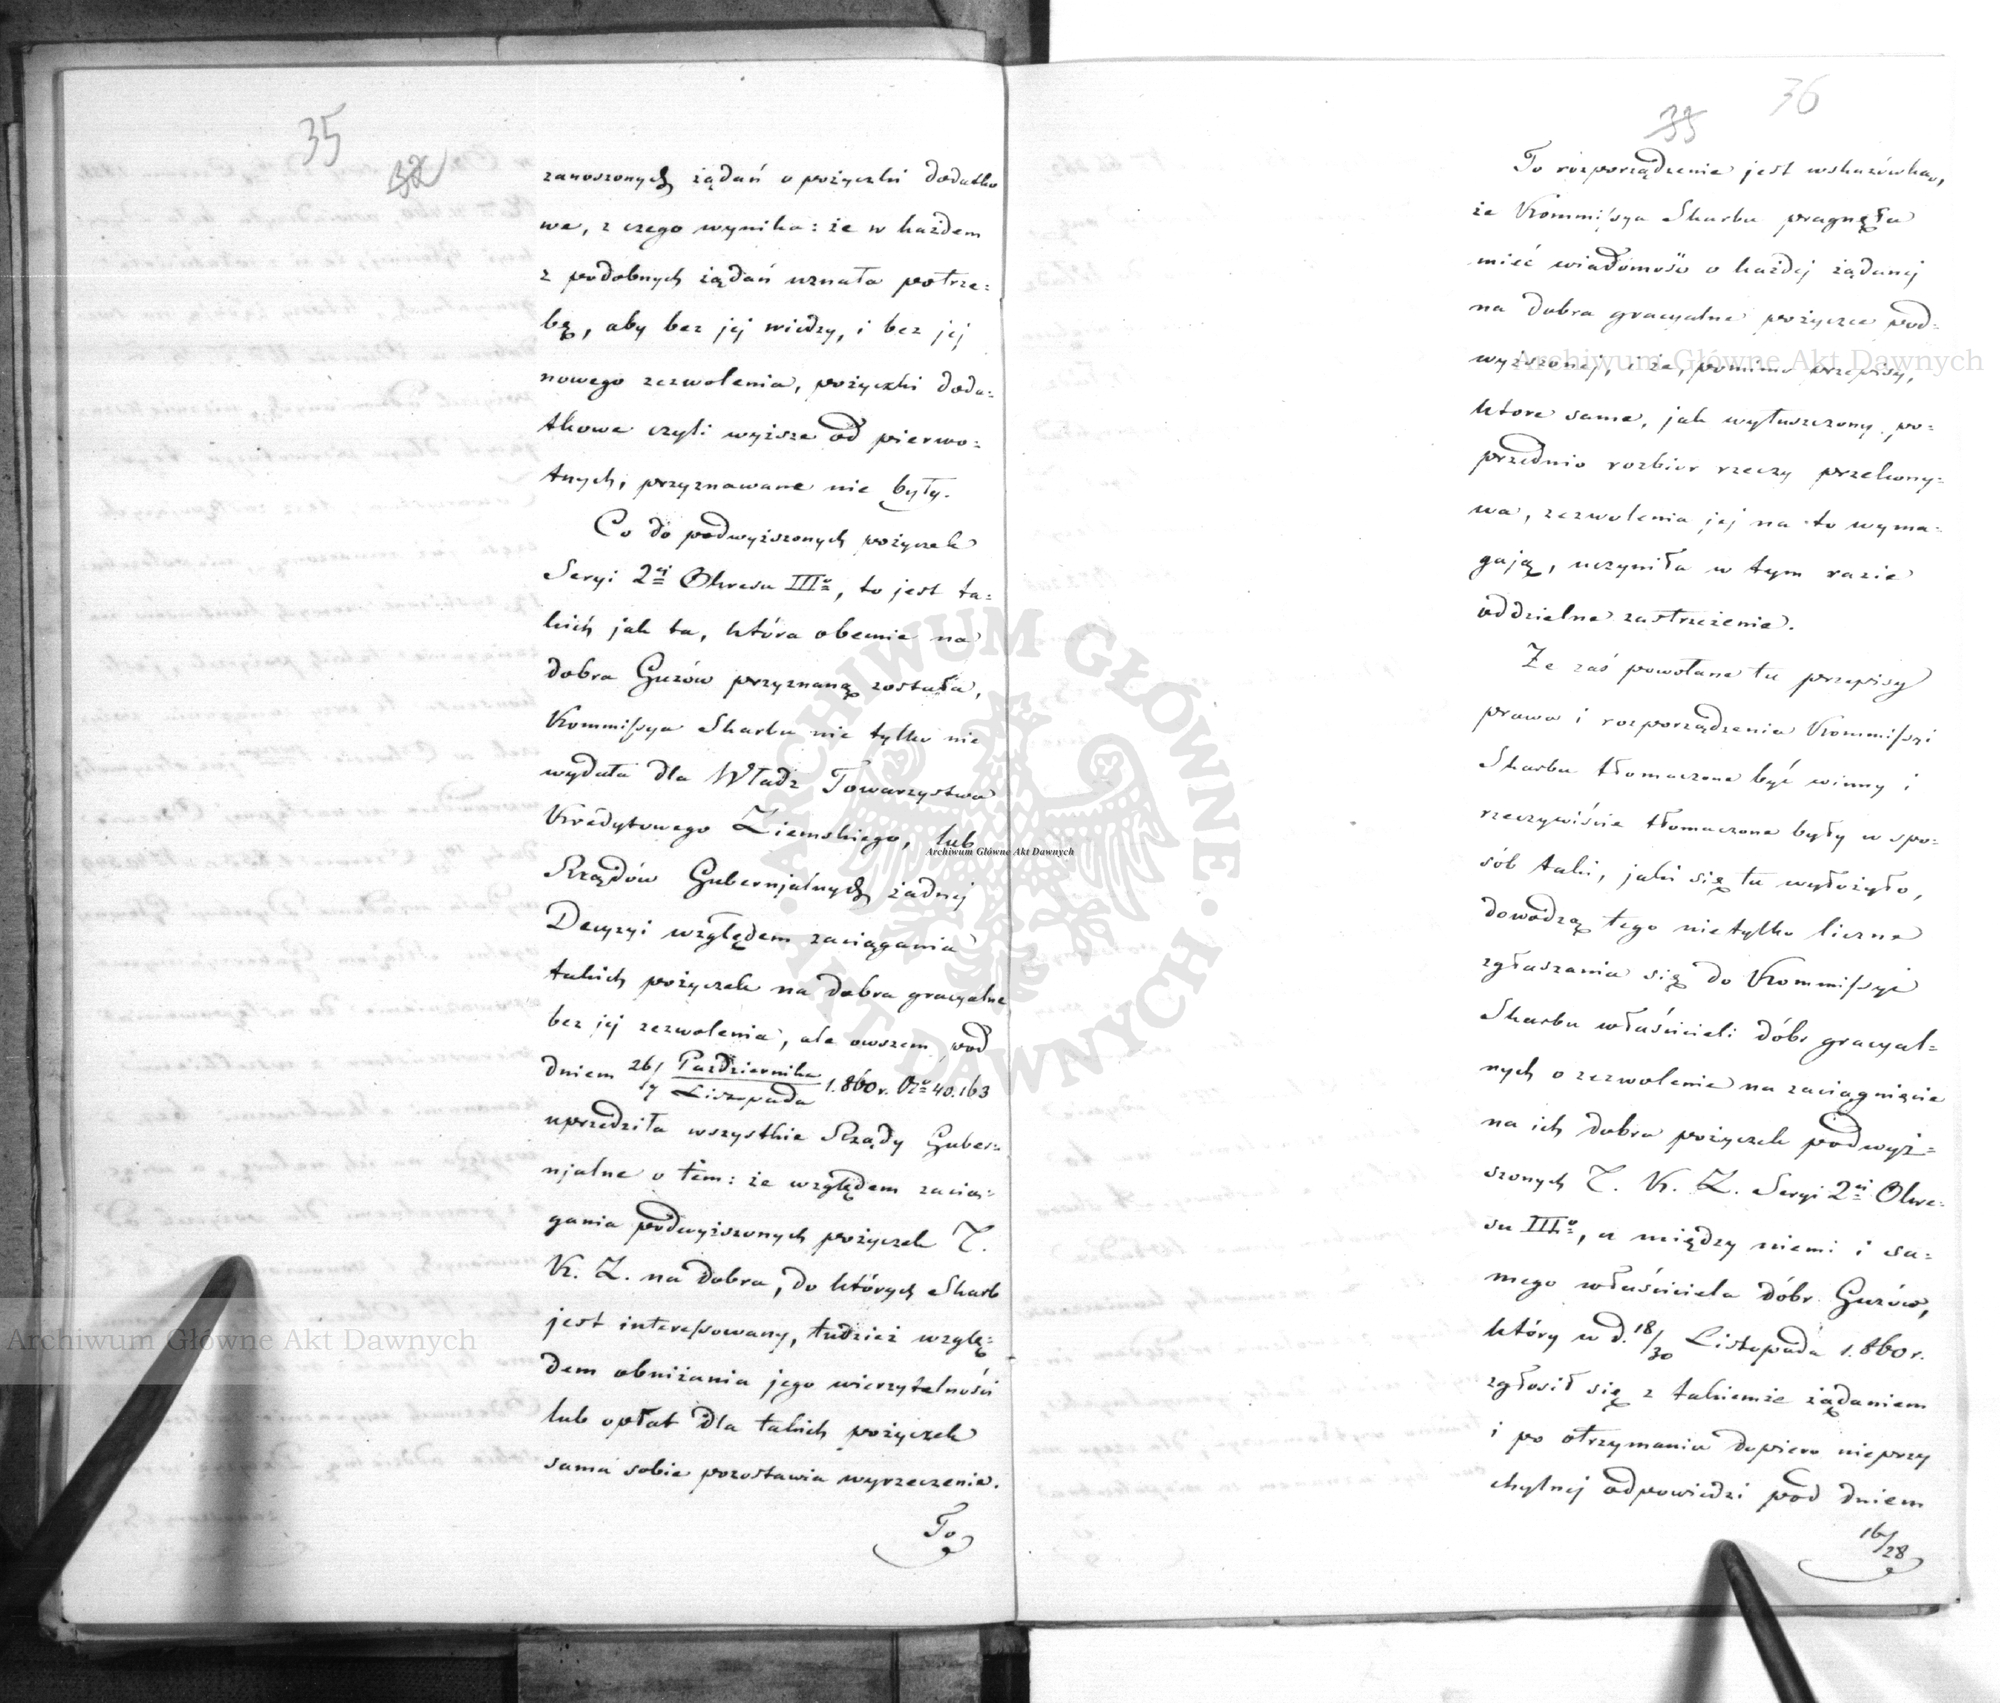 35
32
zanoszonych żądań o pożyczki dodatko
we, z czego wynika: że w każdem
z podobnych żądań uznała potrze=
bę, aby bez jej wiedzy, i bez jej
nowego zezwolenia, pożyczki doda=
tkowe czyli wyższe od pierwo=
tnych, przyznawane nie były.
Co do podwyższonych pożyczek
Seryi 2ej Okresu IIIo, to jest ta=
kich jak ta, która obecnie na
dobra Guzów przyznaną została,
Kommissya Skarbu nie tylko nie
wydała dla Władz Towarzystwa
Kredytowego Ziemskiego, lub
Rządów Gubernjalnych żadnej
Decyzyi względem zaciągania
takich pożyczek na dobra gracyalne
bez jej zezwolenia, ale owszem pod
dniem 26/7 Października/Listopada 1.860 r. No 40.163
uprzedziła wszystkie Rządy Guber=
njalne o tem: że względem zacią=
gania podwyższonych pożyczek T.
K. Z. na dobra, do których Skarb
jest interessowany, tudzież wzglę=
dem obniżania jego wierzytelności
lub opłat dla takich pożyczek
sama sobie pozostawia wyrzeczenie.
To
36
33
To rozporządzenie jest wskazówką,
że Kommissya Skarbu pragnęła
mieć wiadomość o każdej żądanej
na dobra gracyalne pożyczce pod=
wyższonej, i że, pomimo przepisy,
które same, jak wyłuszczony po=
przednio rozbiór rzeczy przekony=
wa, zezwolenia jej na to wyma=
gają, uczyniła w tym razie
oddzielne zastrzeżenie.
Że zaś powołane tu przepisy
prawa i rozporządzenia Kommissyi
Skarbu tłomaczone być winny i
rzeczywiście tłomaczone były w spo=
sób taki, jaki się tu wyłożyło,
dowodzą tego nietylko liczne
zgłaszania się do Kommissyi
Skarbu właścicieli dóbr gracyal=
nych o zezwolenie na zaciągnięcie
na ich dobra pożyczek podwyż=
szonych T. K. Z. Seryi 2ej Okre=
su IIIo, a między niemi i sa=
mego właściciela dóbr Guzów,
który w d. 18/30 Listopada 1.860 r.
zgłosił się z takiemże żądaniem
i po otrzymaniu dopiero nieprzy
chylnej odpowiedzi pod dniem
16/28
Archiwum Główne Akt Dawnych
Archiwum Główne Akt Dawnych
Archiwum Główne Akt Dawnych
ARCHIWUM GŁÓWNE · AKT DAWNYCH ·